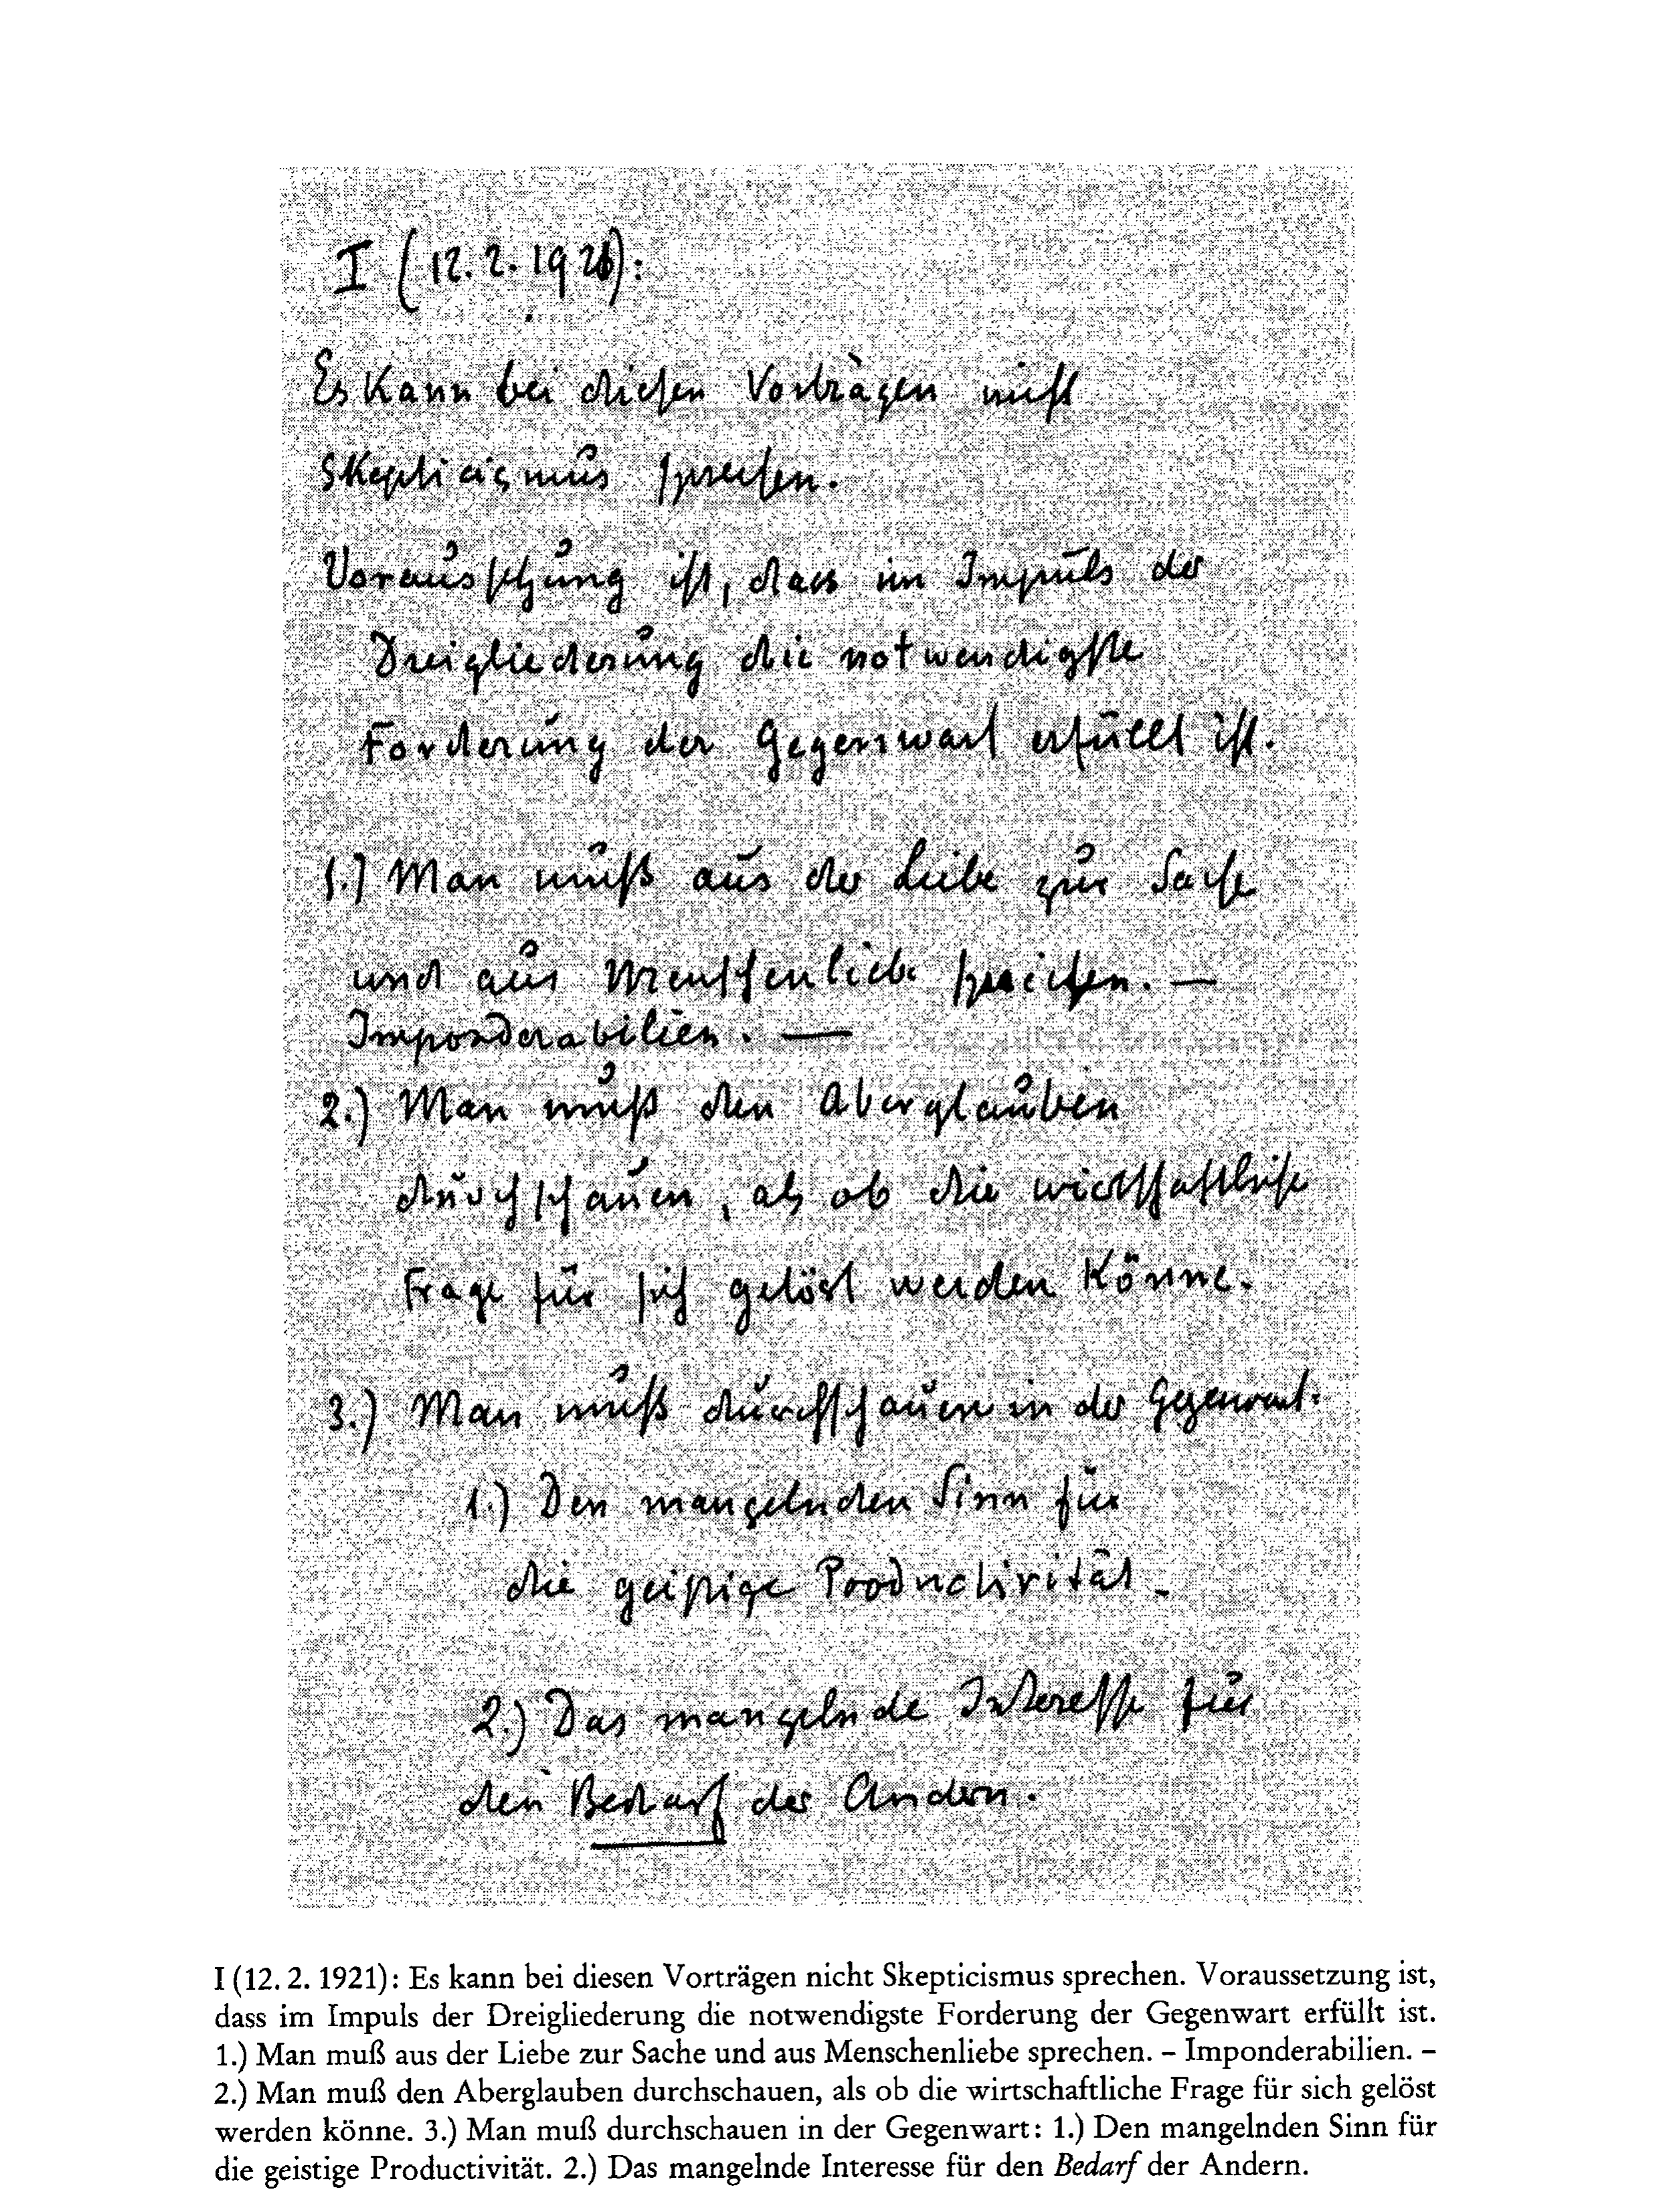 I (12. 2. 1921):
Es kann bei diesen Vorträgen nicht
Skepticismus sprechen.
Voraussetzung ist, dass im Impuls der
Dreigliederung die notwendigste
Forderung der Gegenwart erfüllt ist.
1.) Man muß aus der Liebe zur Sache
und aus Menschenliebe sprechen. —
Imponderabilien. —
2.) Man muß den Aberglauben
durchschauen, als ob die wirtschaftliche
Frage für sich gelöst werden könne.
3.) Man muß durchschauen in der Gegenwart:
1.) Den mangelnden Sinn für
die geistige Productivität.
2.) Das mangelnde Interesse für
den Bedarf der Andern.
I (12. 2. 1921): Es kann bei diesen Vorträgen nicht Skepticismus sprechen. Voraussetzung ist,
dass im Impuls der Dreigliederung die notwendigste Forderung der Gegenwart erfüllt ist.
1.) Man muß aus der Liebe zur Sache und aus Menschenliebe sprechen. – Imponderabilien. –
2.) Man muß den Aberglauben durchschauen, als ob die wirtschaftliche Frage für sich gelöst
werden könne. 3.) Man muß durchschauen in der Gegenwart: 1.) Den mangelnden Sinn für
die geistige Productivität. 2.) Das mangelnde Interesse für den Bedarf der Andern.